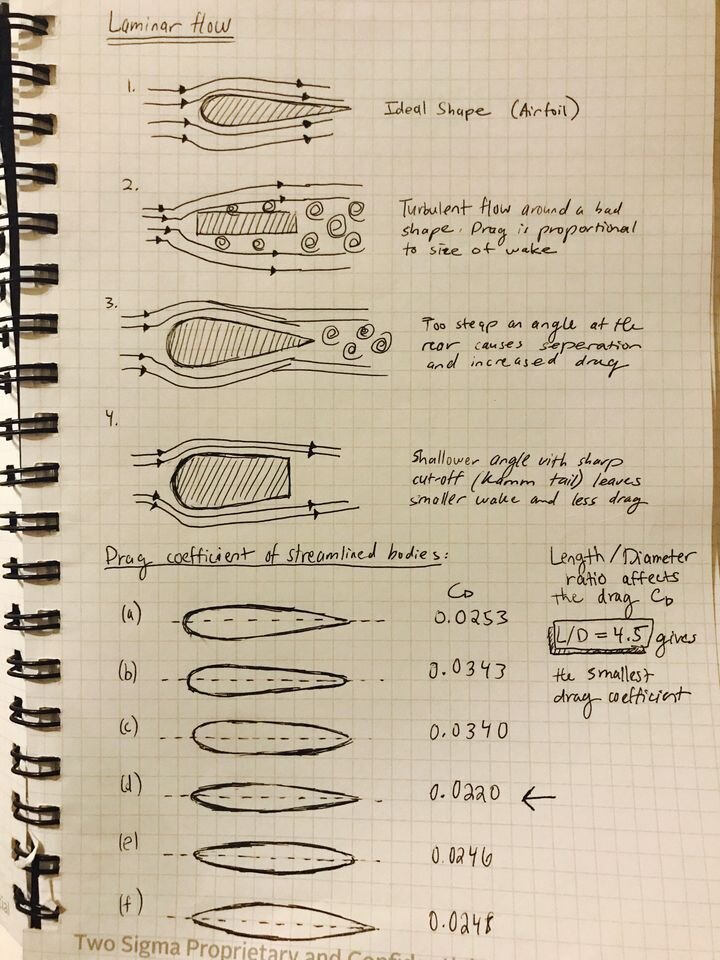 Laminar flow
1.
Ideal Shape (Airfoil)
2.
Turbulent flow around a bad
shape. Drag is proportional
to size of wake
3.
Too steep an angle at the
rear causes seperation
and increased drag
4.
Shallower angle with sharp
cut-off (Kamm tail) leaves
smaller wake and less drag
Drag coefficient of streamlined bodies:
Length/Diameter
ratio affects
the drag CD
L/D = 4.5 gives
the smallest
drag coefficient
CD
(a) 0.0253
(b) 0.0343
(c) 0.0340
(d) 0.0220 ←
(e) 0.0246
(f) 0.0248
Two Sigma Proprietary and